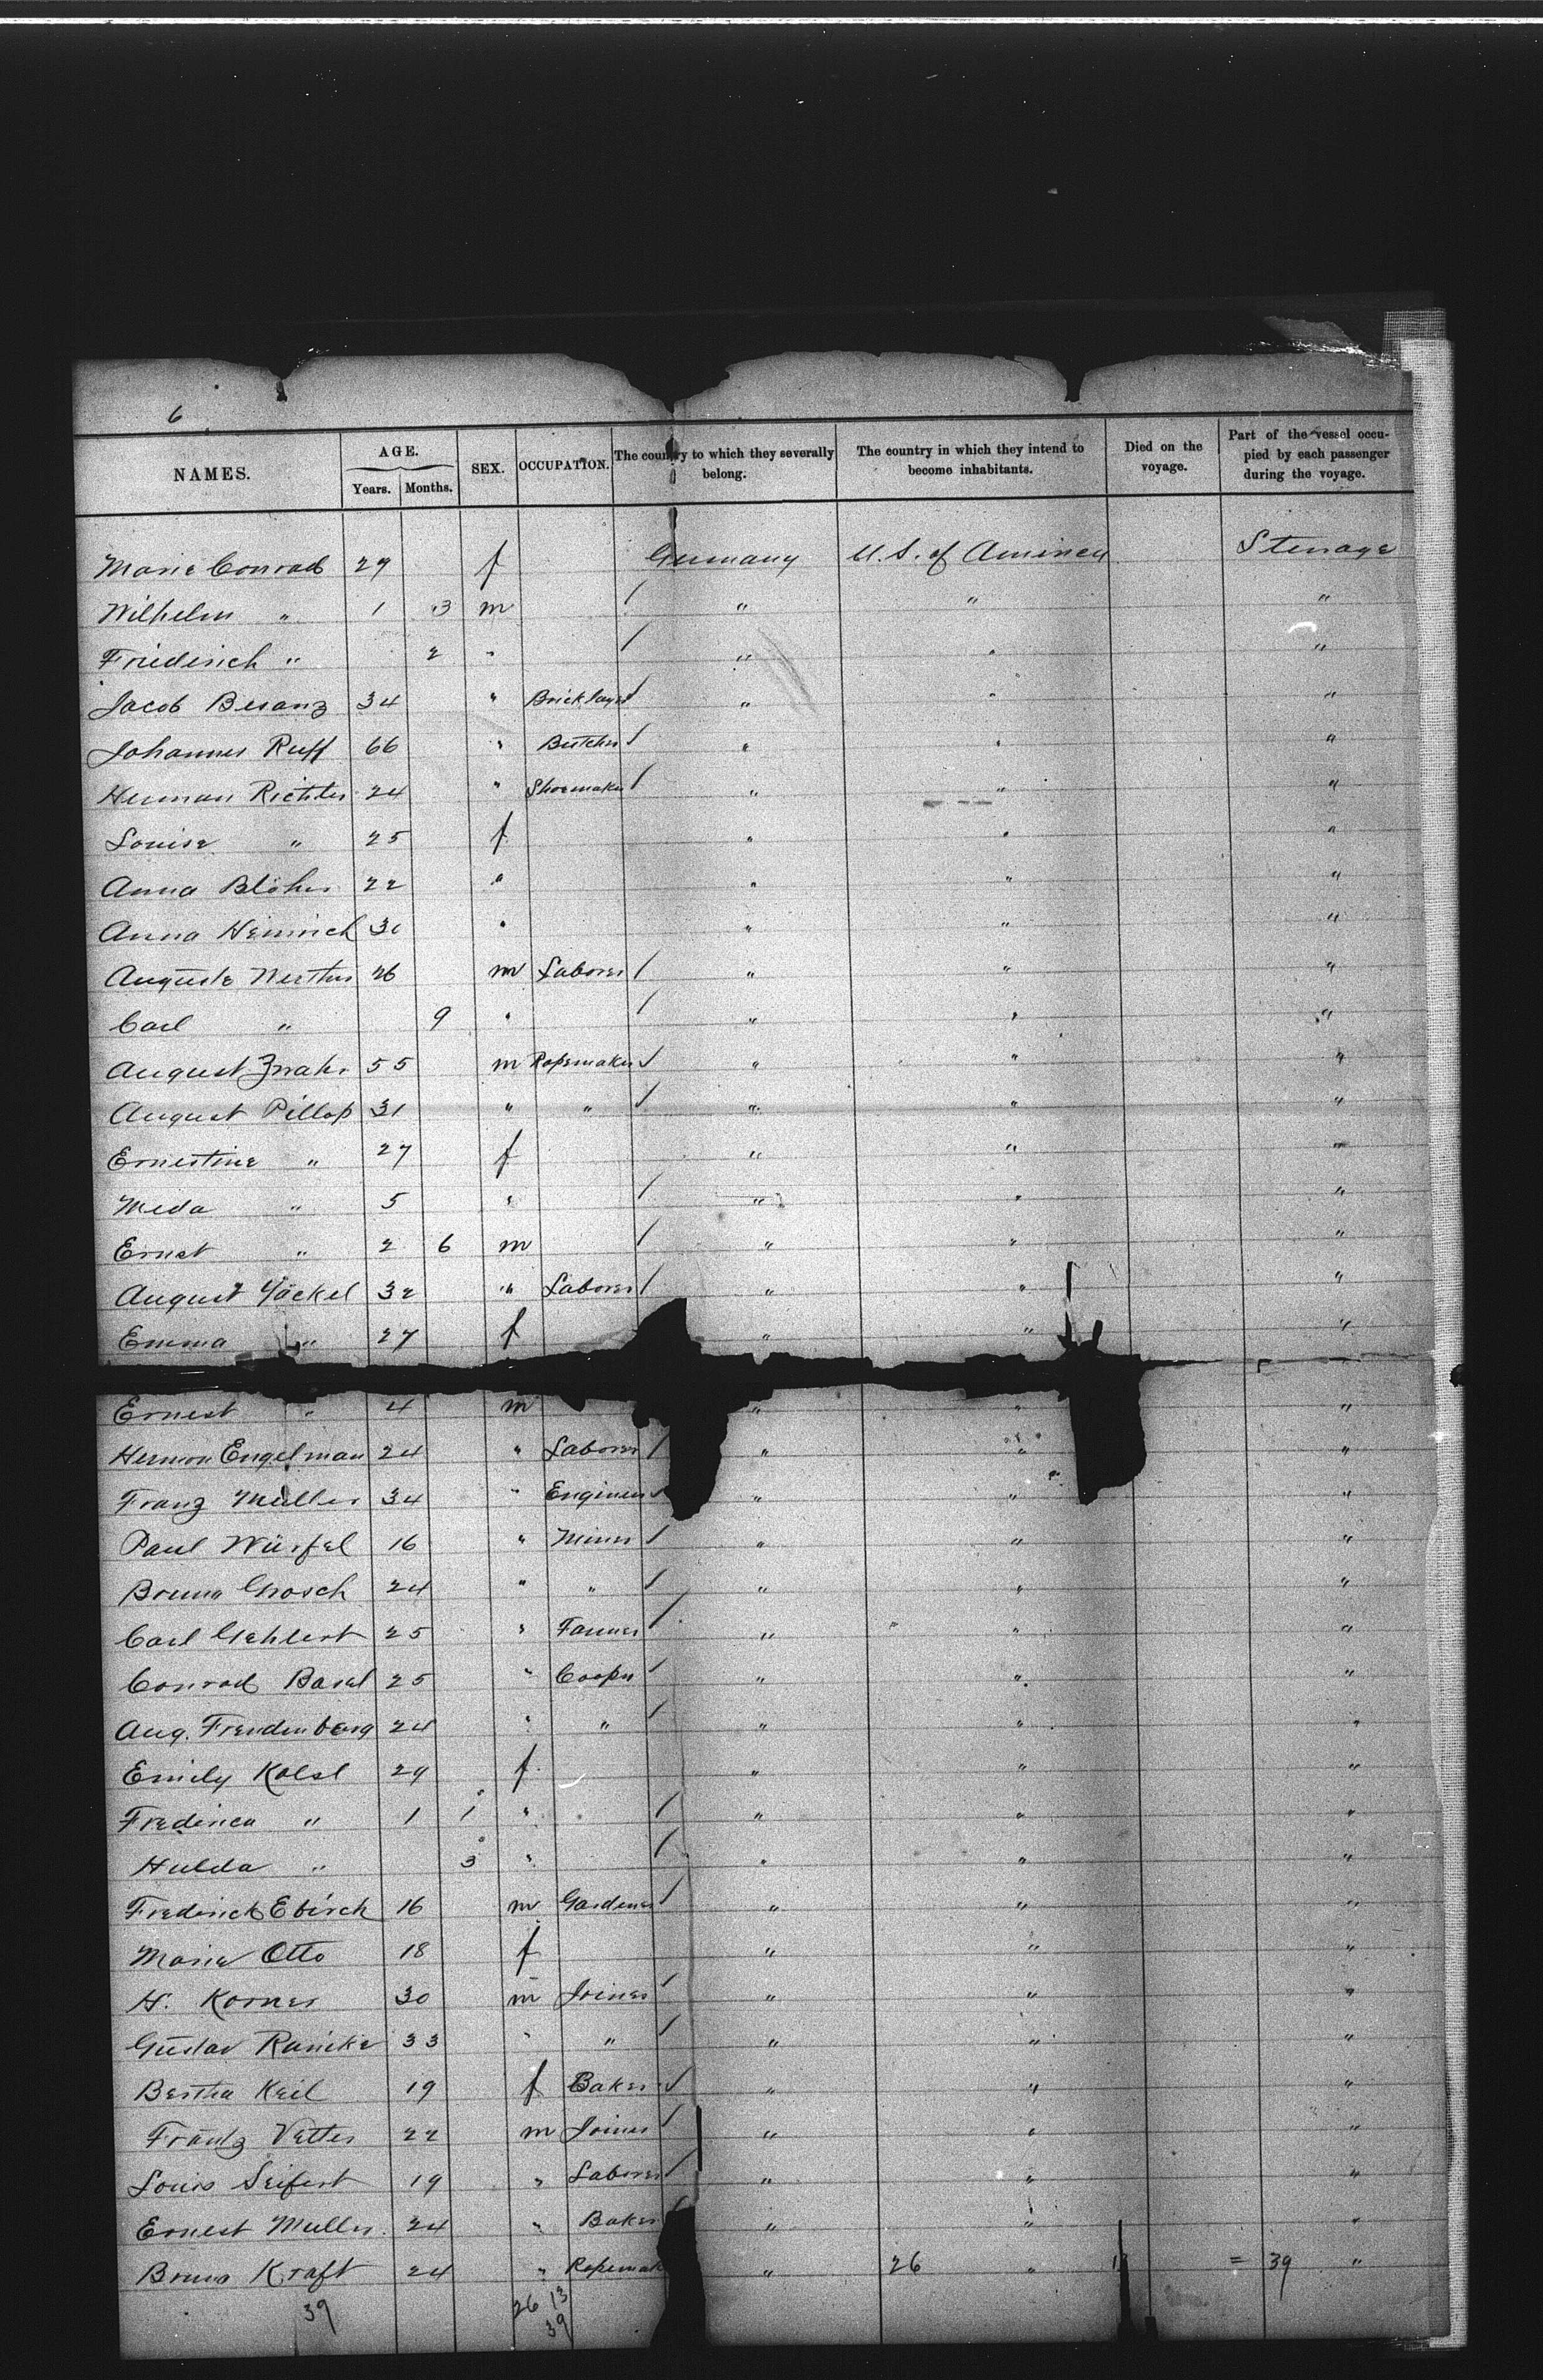 6
NAMES. AGE. Years. Months. SEX. OCCUPATION. The country to which they severally belong. The country in which they intend to become inhabitants. Died on the voyage. Part of the vessel occupied by each passenger during the voyage.
Marie Conrad 29 f Germany U.S. of America Steerage
Wilhelm " 1 3 m / " " "
Friederich " 2 " / " " "
Jacob Besanz 34 " Bricklayer / " " "
Johannes Ruff 66 " Butcher / " " "
Herman Richter 24 " Shoemaker / " " "
Louise " 25 f " " "
Anna Blöher 22 " " " "
Anna Heinrich 30 " " " "
Auguste Werther 26 m Laborer / " " "
Carl " 9 " / " " "
August 55 m Ropemaker / " " "
August Pillop 31 " " / " " "
Ernestine " 27 f " " "
Meda " 5 " / " " "
Ernst " 2 6 m / " " "
August Jäckel 32 " Laborer / " " "
Emma " 27 f " " "
Ernest " 4 m " " "
Hermon Engelman 24 " Laborer / " " "
Franz Muller 34 " Engineer / " " "
Paul Würfel 16 " Miner / " " "
Bruno Grosch 24 " " / " " "
Carl Gehlert 25 " Farmer / " " "
Conrad Basel 25 " Cooper / " " "
Aug. Freudenberg 24 " " / " " "
Emily Kolsl 29 f " " "
Frederica " 1 1 " / " " "
Hulda " 3 " / " " "
Frederick Ebisch 16 m Gardener / " " "
Maria Otto 18 f " " "
H. Korner 30 m Joiner / " " "
Gustav Runicke 33 " " / " " "
Bertha Keil 19 f Baker / " " "
Frantz Vetter 22 m Joiner / " " "
Louis Seifert 19 " Laborer / " " "
Ernest Muller 24 " Baker / " " "
Bruno Kraft 24 " Ropemak " 26 " 13 = 39 "
39 26 13
39